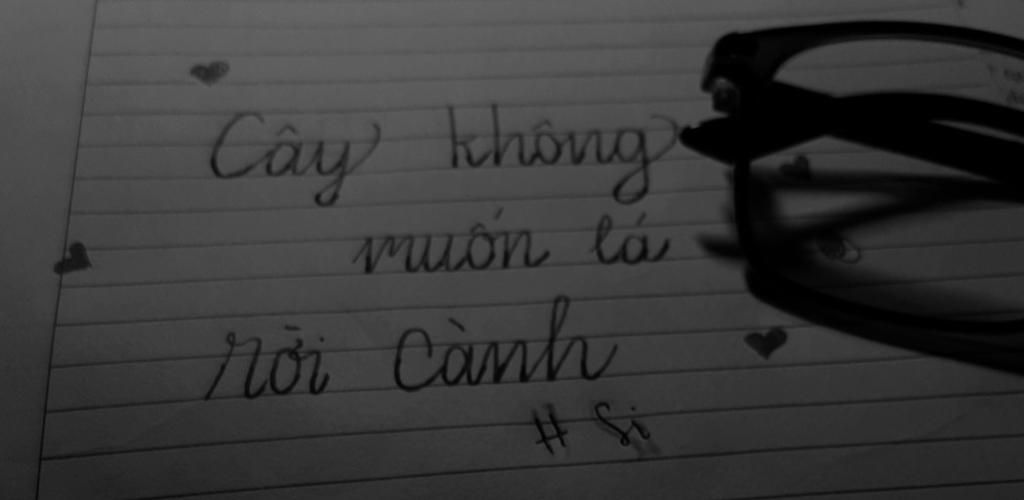 Cây không
muốn lá
rời cành
# Si